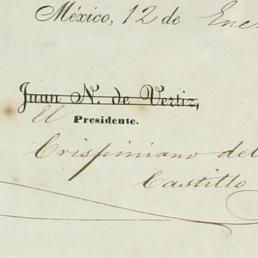 México, 12 de Ene
Juan N. de Vertiz,
El
Presidente.
Crispiniano del
Castillo